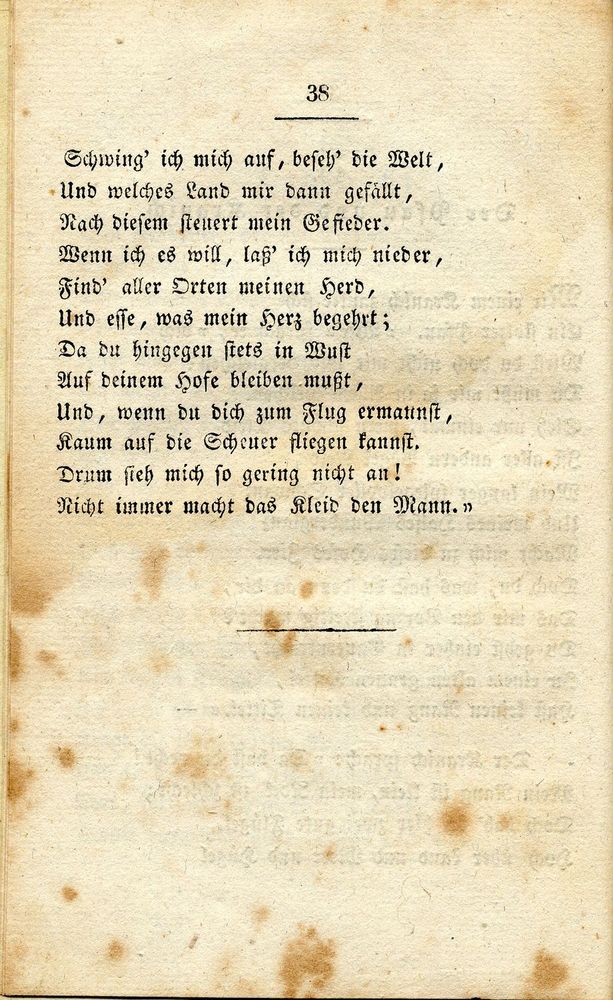 38
Schwing' ich mich auf, beseh' die Welt,
Und welches Land mir dann gefällt,
Nach diesem steuert mein Gefieder.
Wenn ich es will, laß' ich mich nieder,
Find' aller Orten meinen Herd,
Und esse, was mein Herz begehrt;
Da du hingegen stets in Wust
Auf deinem Hofe bleiben mußt,
Und, wenn du dich zum Flug ermannst,
Kaum auf die Scheuer fliegen kannst.
Drum sieh mich so gering nicht an!
Nicht immer macht das Kleid den Mann.»